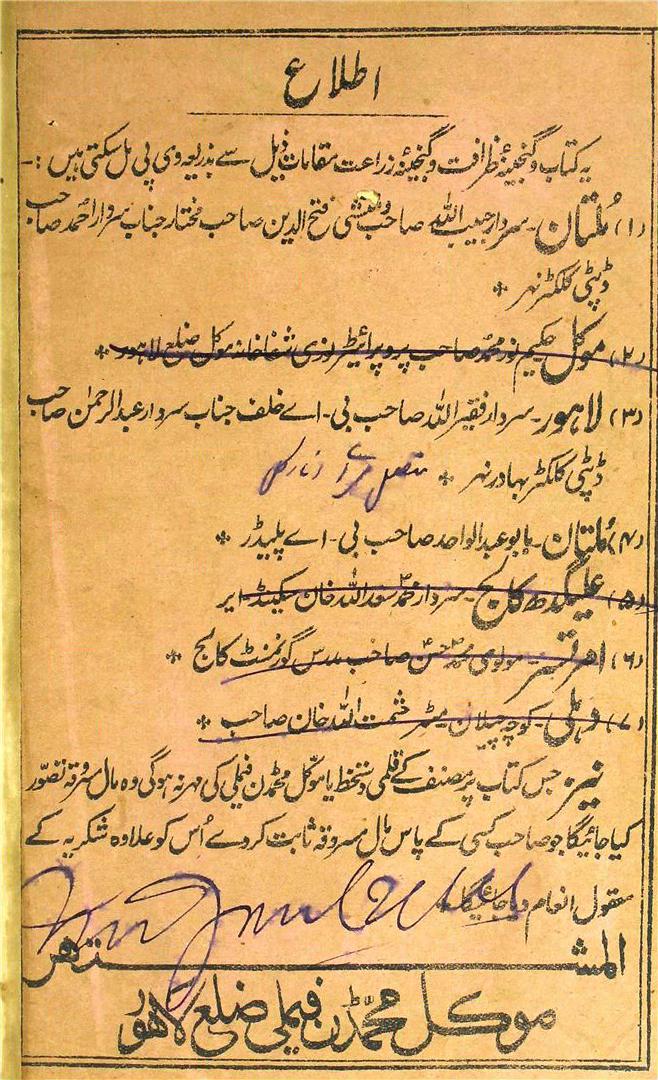 اطلاع
یہ کتاب و گنجینۂ ظرافت و گنجینۂ زراعت مقامات ذیل سے بذریعہ وی پی مل سکتی ہیں :-
(۱) مُلتان - سردار حبیب اللہ صاحب و منشی فتح الدین صاحب مختار جناب سردار احمد صاحب
ڈپٹی کلکٹر نہر *
(۲) موکل حکیم نور محمد صاحب پروپرائیٹر نوری شفاخانہ موکل ضلع لاہور *
(۳) لاہور - سردار فقیر اللہ صاحب بی - اے خلف جناب سردار عبد الرحمٰن صاحب
ڈپٹی کلکٹر بہادر نہر * متصل
(۴) مُلتان - بابو عبد الواحد صاحب بی - اے پلیڈر *
(۵) علیگڈھ کالج - سردار محمد سعد اللہ خان سیکنڈ ایر
(۶) امرتسر مولوی محمد حسن صاحب مدرس گورنمنٹ کالج *
(۷) دہلی - کوچہ چیلان - مسٹر حشمت اللہ خان صاحب *
نیز جس کتاب پر مصنف کے قلمی دستخط یا موکل محمڈن فیملی کی مہر نہ ہوگی وہ مال مسروقہ تصّور
کیا جائیگا جو صاحب کسی کے پاس مال مسروقہ ثابت کر دے اُس کو علاوہ شکریہ کے
معقول انعام دیا جائیگا *
المشتھر
موکل محمّڈن فیملی ضلع لاہور